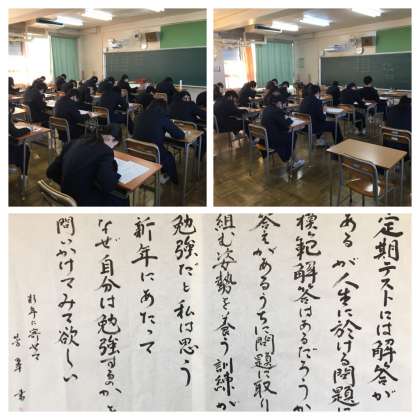 定期テストには解答が
あるが人生に於ける問題
模範解答はあるだろうか
答えがあるうちに問題に取り
組む姿勢を養う訓練が
勉強だと私は思う
新年にあたって
なぜ自分は勉強するのか、と
問いかけてみて欲しい
新年に寄せて